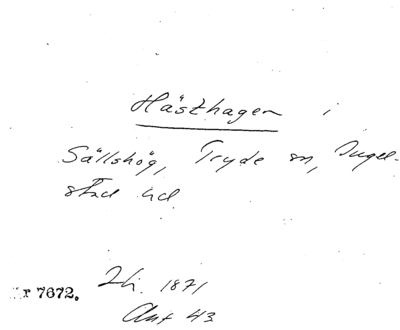 Hästhagen i
Sällshög, Tryde sn, Ingel-
stad hd
r 7672. Lh. 1871
Ant 43